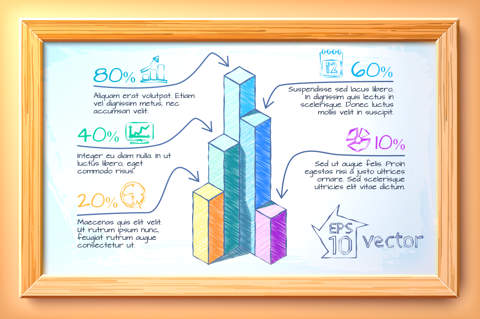 80%
Aliquam erat volutpat. Etiam
vel dignissim metus, nec
accumsan velit.
40%
Integer eu diam nulla. In ut
luctus libero, eget
commodo risus.
20%
Maecenas quis elit velit.
Ut rutrum ipsum nunc,
feugiat rutrum augue
consectetur ut.
60%
Suspendisse sed lacus libero.
In dignissim quis lectus in
scelerisque. Donec luctus
mollis velit in suscipit.
10%
Sed ut augue felis. Proin
egestas nisi a justo ultrices
ornare. Sed scelerisque
ultricies elit vitae dictum.
EPS
10
vector